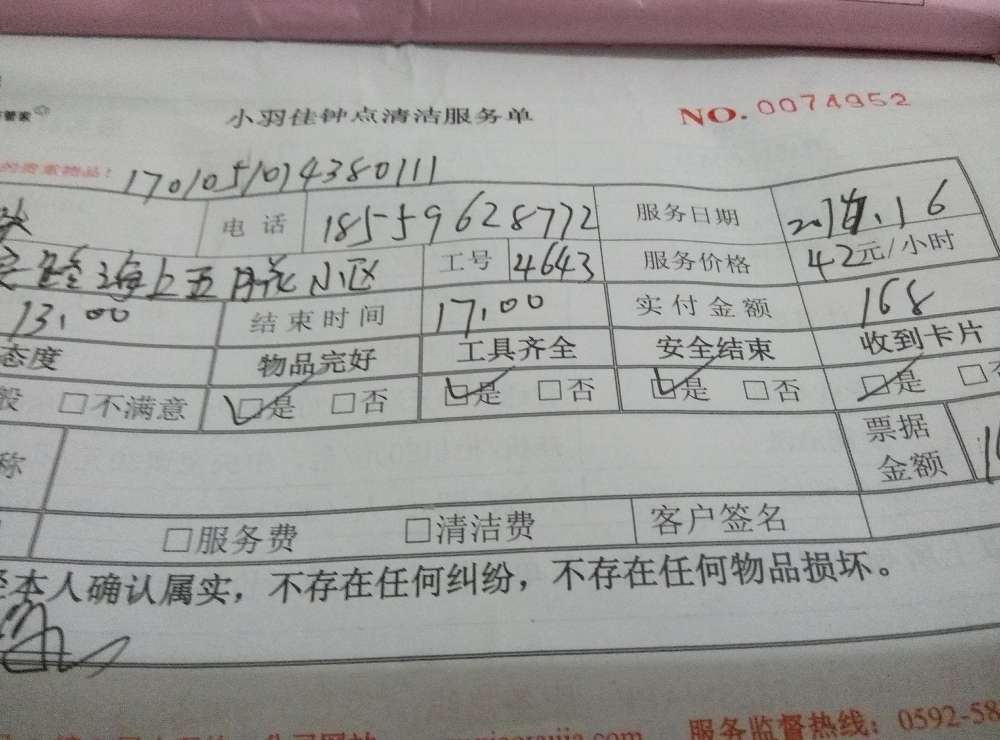 管家
小羽佳钟点清洁服务单 NO.0074952
的贵重物品! 1701051014380111
电话 18559628772 服务日期
海上五月花小区 工号 4643 服务价格 42元/小时
13:00 结束时间 17:00 实付金额 168
态度 物品完好 工具齐全 安全结束 收到卡片
般 □不满意 □是 □否 □是 □否 □是 □否 □是
称 票据金额
□服务费 □清洁费 客户签名
本人确认属实，不存在任何纠纷，不存在任何物品损坏。
服务监督热线：0592-58